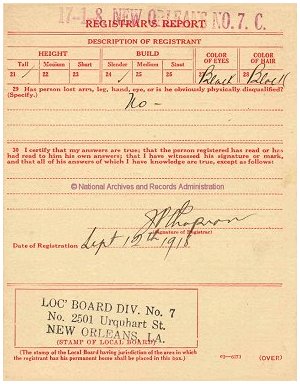 17-1-8 NEW ORLEANS NO. 7. C.
REGISTRAR'S REPORT
DESCRIPTION OF REGISTRANT
HEIGHT BUILD COLOR OF EYES COLOR OF HAIR
Tall Medium Short Slender Medium Stout
21 / 22 23 24 / 25 26 27 Black 28 Black
29 Has person lost arm, leg, hand, eye, or is he obviously physically disqualified?
(Specify.)
No -
30 I certify that my answers are true; that the person registered has read or has
had read to him his own answers; that I have witnessed his signature or mark,
and that all of his answers of which I have knowledge are true, except as follows:
© National Archives and Records Administration
(Signature of Registrar)
Date of Registration Sept 12th 1918
LOC' BOARD DIV. No. 7
No. 2501 Urquhart St.
NEW ORLEANS, LA.
(STAMP OF LOCAL BOARD)
(The stamp of the Local Board having jurisdiction of the area in which
the registrant has his permanent home shall be placed in this box.)
03—6171 (OVER)